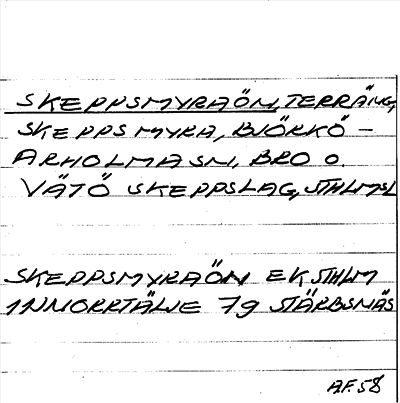 SKEPPSMYRAÖN, TERRÄNG,
SKEPPSMYRA, BJÖRKÖ -
ARHOLMA SN, BRO O.
VÄTÖ SKEPPSLAG, STHLMSL
SKEPPSMYRAÖN EK STHLM
11N NORRTÄLJE 7g STÄRBSNÄS
A.F. 58